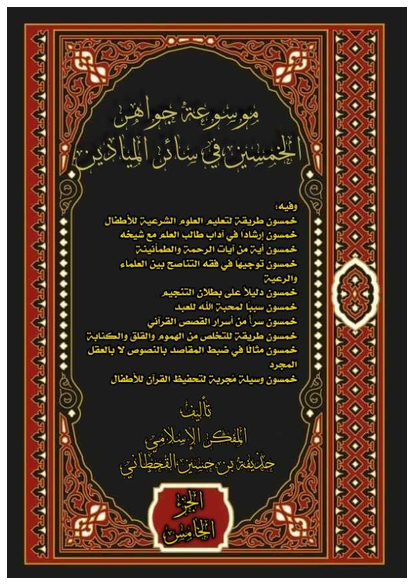 موسوعة جواهر
الخمسين في سائر الميادين
وفيه:
خمسون طريقة لتعليم العلوم الشرعية للأطفال
خمسون إرشادا في آداب طالب العلم مع شيخه
خمسون آية من آيات الرحمة والطمأنينة
خمسون توجيها في فقه التناصح بين العلماء
والرعية
خمسون دليلاً على بطلان التنجيم
خمسون سببا لمحبة الله للعبد
خمسون سراً من أسرار القصص القرآني
خمسون طريقة للتخلص من الهموم والقلق والكتابة
خمسون مثالا في ضبط المقاصد بالنصوص لا بالعقل
المجرد
خمسون وسيلة مجربة لتحفيظ القرآن للأطفال
تأليف
المفكر الإسلامي
حذيفة بن حسين القحطاني
الجزء
الخامس